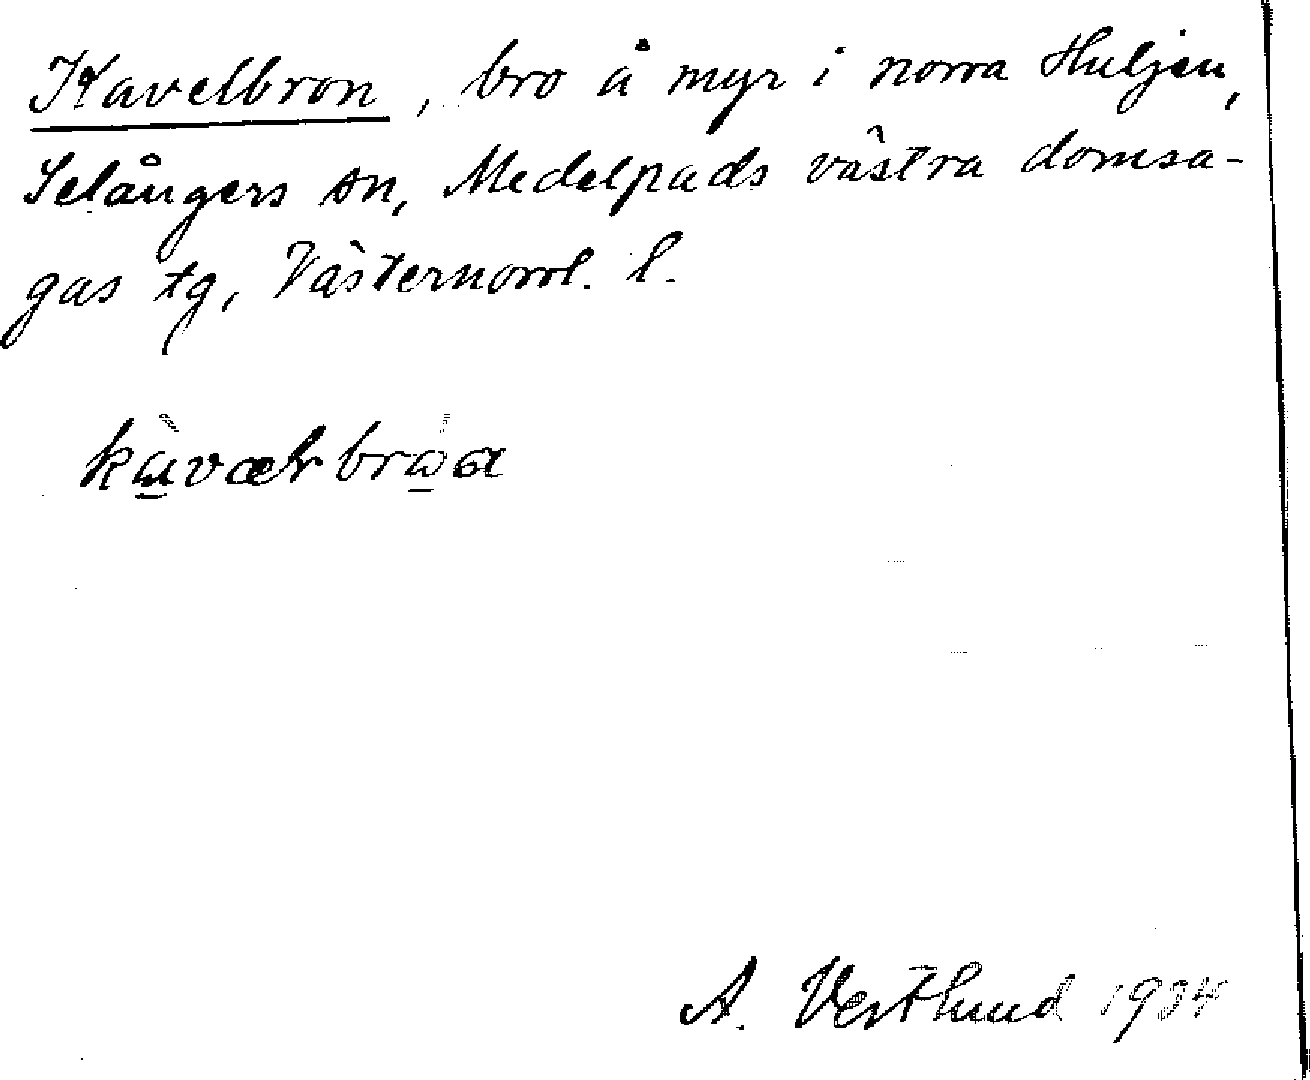 Kavelbron, bro å myr i norra Huljen,
Selångers sn, Medelpads västra domsa-
gas tg, Västernorrl. l.
A. Vestlund 1934